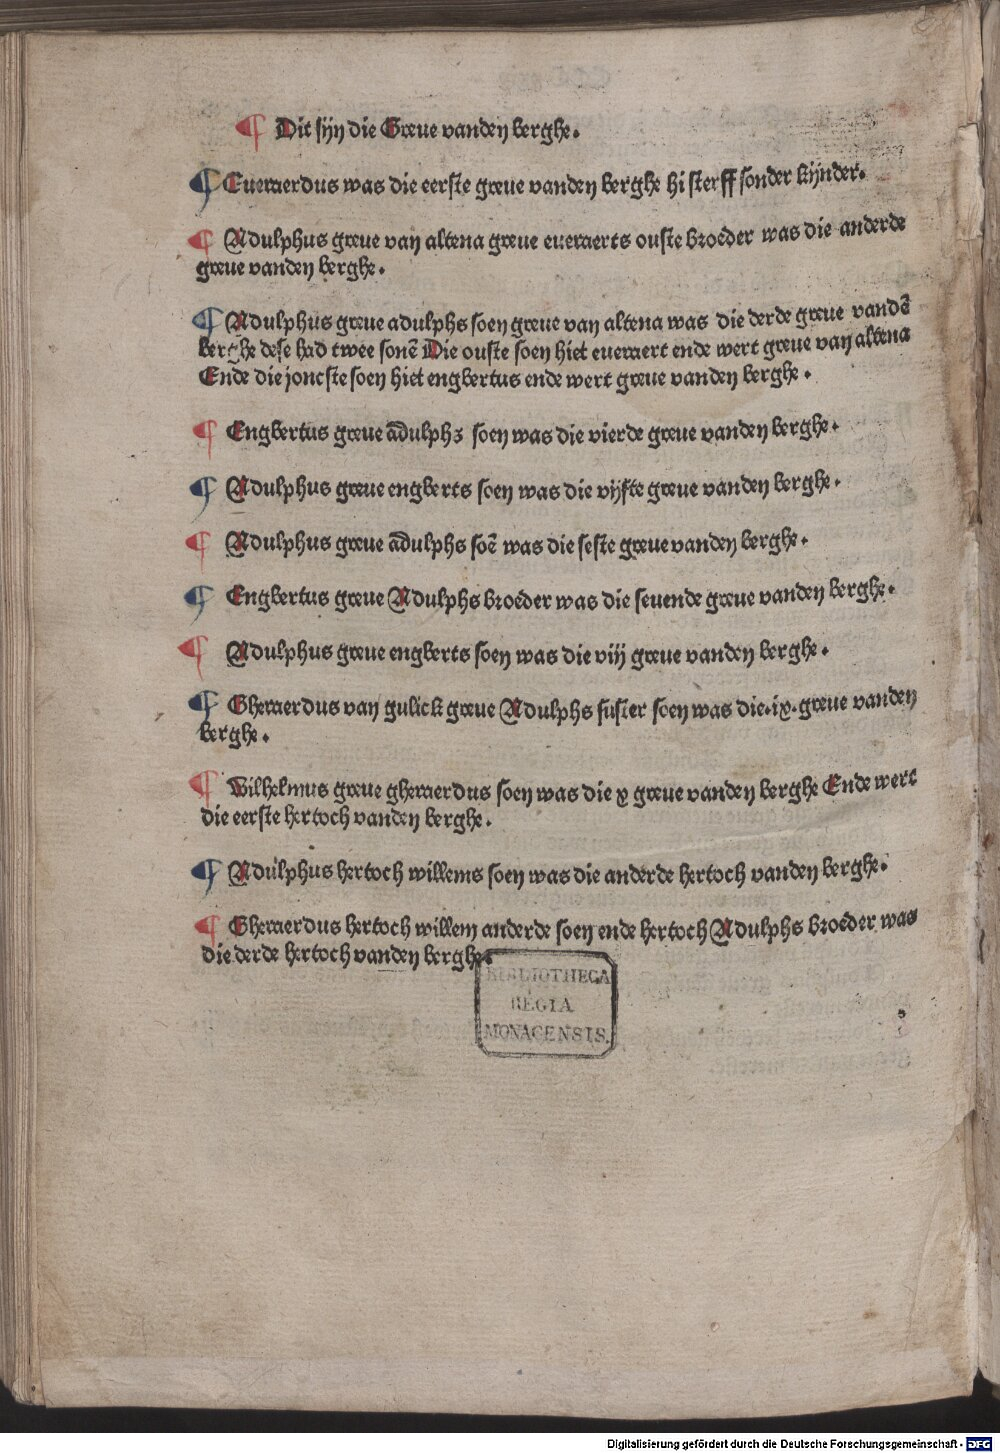 ¶ Dit sijn die Greue vanden berghe.
¶ Eueraerdus was die eerste greue vanden berghe hi sterff sonder kijnder.
¶ Adulphus greue van altena greue eueraerts ouste broeder was die anderde
greue vanden berghe.
¶ Adulphus greue adulphs soen greue van altena was die derde greue vandē
berghe dese had twee sonē Die ouste soen hiet eueraert ende wert greue van altena
Ende die joncste soen hiet engbertus ende wert greue vanden berghe.
¶ Engbertus greue adulphs soen was die vierde greue vanden berghe.
¶ Adulphus greue engberts soen was die vijfte greue vanden berghe.
¶ Adulphus greue adulphs soē was die seste greue vanden berghe.
¶ Engbertus greue Adulphs broeder was die seuende greue vanden berghe.
¶ Adulphus greue engberts soen was die viij greue vanden berghe.
¶ Gheraerdus van gulick greue Adulphs suster soen was die.ix.greue vanden
berghe.
¶ Wilhelmus greue gheraerdus soen was die x greue vanden berghe Ende wert
die eerste hertoch vanden berghe.
¶ Adulphus hertoch willems soen was die anderde hertoch vanden berghe.
¶ Gheraerdus hertoch willem anderde soen ende hertoch Adulphs broeder was
die derde hertoch vanden berghe.
BIBLIOTHECA
REGIA
MONACENSIS.
Digitalisierung gefördert durch die Deutsche Forschungsgemeinschaft - DFG